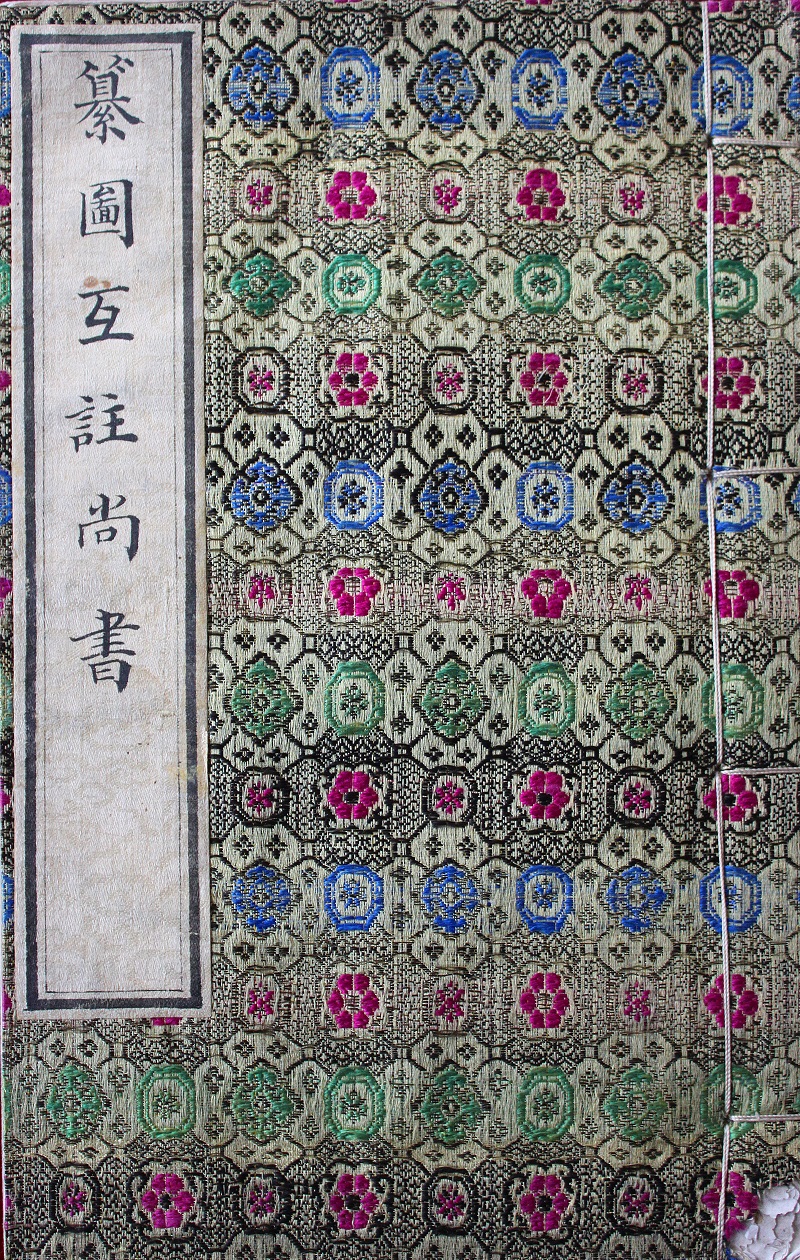 纂圖互註尚書